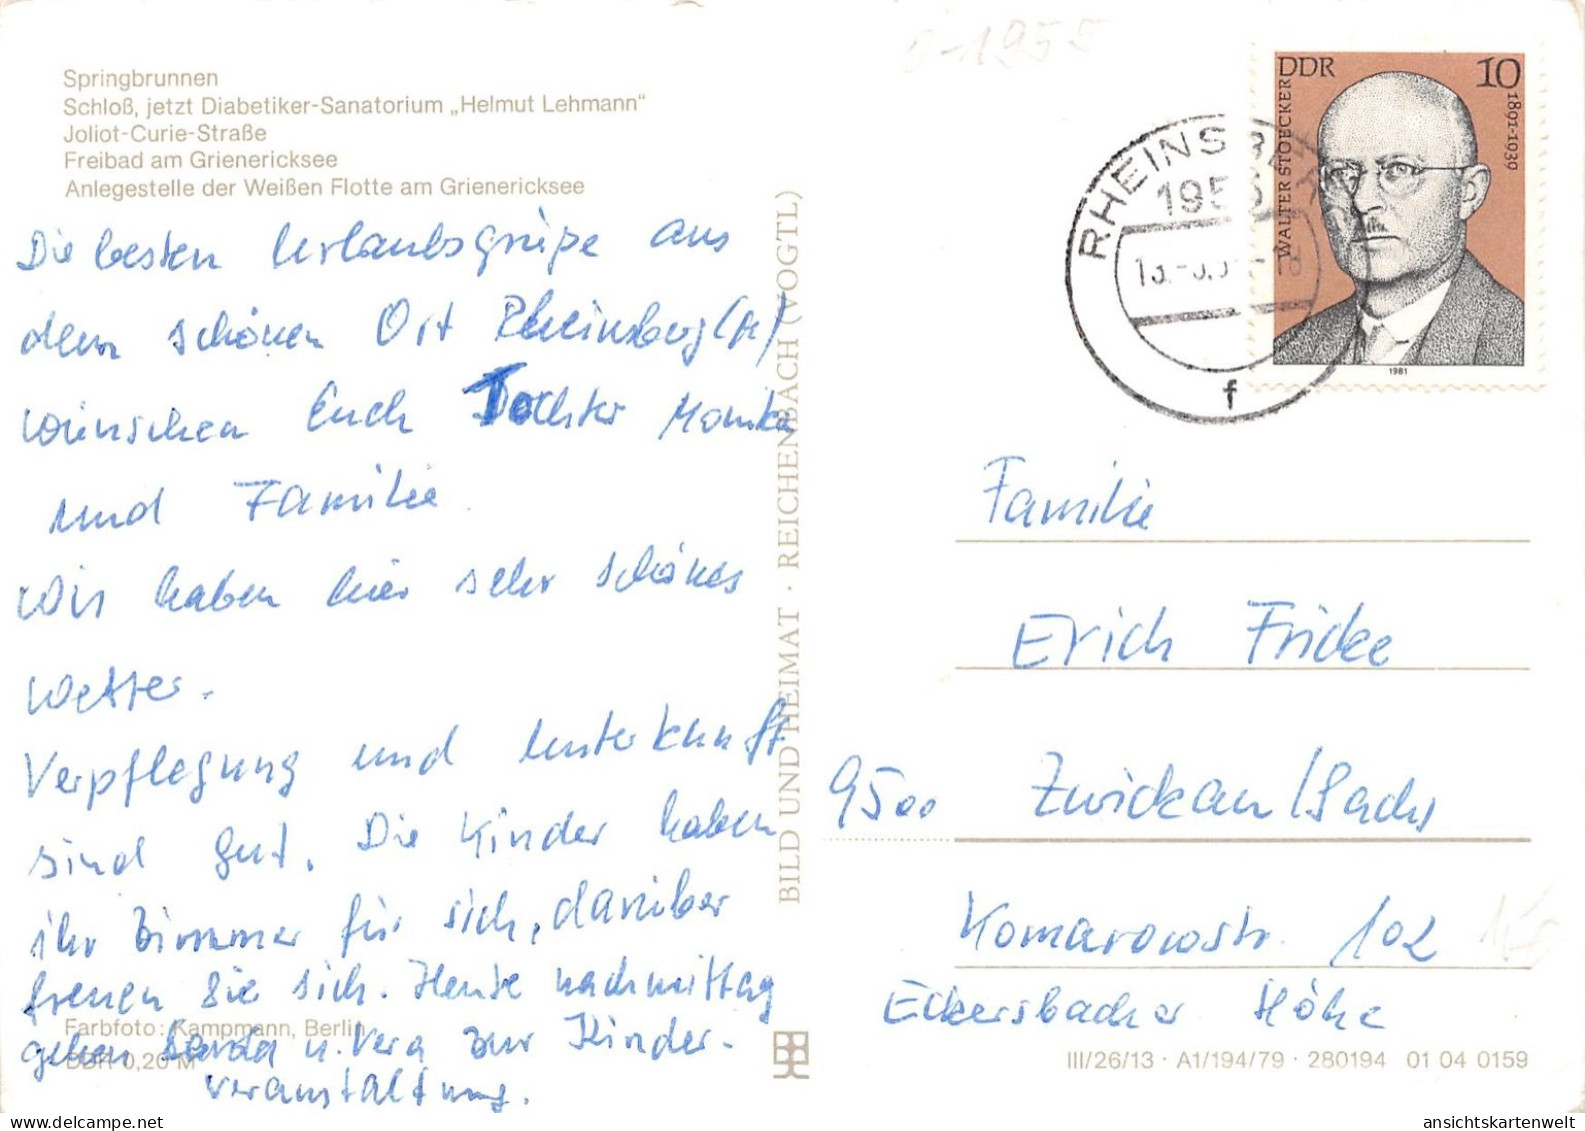 Springbrunnen
Schloß, jetzt Diabetiker-Sanatorium „Helmut Lehmann“
Joliot-Curie-Straße
Freibad am Grienericksee
Anlegestelle der Weißen Flotte am Grienericksee
Die besten Urlaubsgrüße aus
dem schönen Ort Rheinsberg
wünschen Euch Tochter Monika
und Familie.
Wir haben hier sehr schönes
Wetter.
Verpflegung und Unterkunft
sind gut. Die Kinder haben
ihr Zimmer für sich, darüber
freuen Sie sich. Heute nachmittag
gehen u. Vera zur Kinder-
veranstaltung.
Farbfoto: Kampmann, Berlin
DDR 0,20 M
BILD UND HEIMAT · REICHENBACH (VOGTL)
0-1955
DDR 10
WALTER STOECKER
1891-1939
1981
RHEINSBERG
195
f
Familie
Erich Fricke
9500 Zwickau/Sachs
Komarowstr. 102
Eckersbacher Höhe
III/26/13 · A1/194/79 · 280194 01 04 0159
ansichtskartenwelt